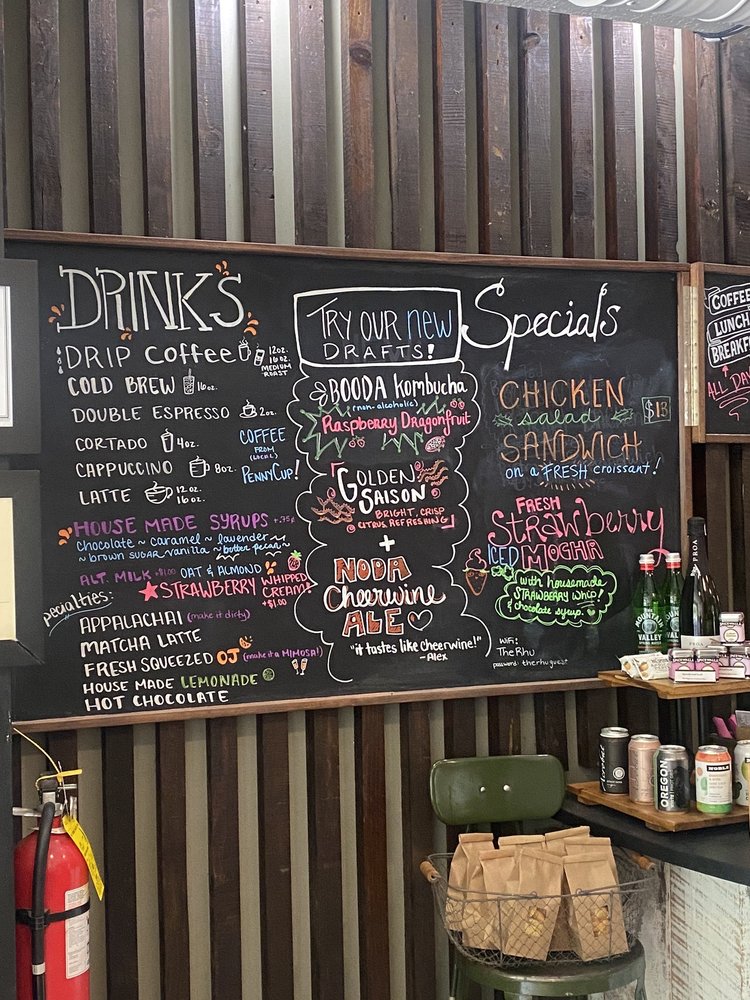 DRINKS
DRIP COFFEE 12oz.
16oz.
MEDIUM
ROAST
COLD BREW 16oz.
DOUBLE ESPRESSO 2oz.
CORTADO 4oz.
CAPPUCCINO 8oz.
LATTE 12oz.
16oz.
COFFEE
FROM
(LOCAL)
PENNYCUP!
HOUSE MADE SYRUPS +.75¢
chocolate ~ caramel ~ lavender ~
~ brown sugar ~ vanilla ~ butter pecan ~
ALT. MILK +$1.00 OAT & ALMOND
STRAWBERRY WHIPPED
CREAM!
+$1.00
Specialties:
APPALACHAI (make it dirty)
MATCHA LATTE
FRESH SQUEEZED OJ (make it a MIMOSA!)
HOUSE MADE LEMONADE
HOT CHOCOLATE
TRY OUR new
DRAFTS!
BOODA Kombucha
(non-alcoholic)
Raspberry Dragonfruit
GOLDEN
SAISON
BRIGHT, CRISP
CITRUS, REFRESHING
+
NODA
Cheerwine
ALE
"it tastes like cheerwine!"
-Alex
Specials
CHICKEN
salad $13
SANDWICH
on a FRESH croissant!
FRESH
Strawberry
ICED MOCHA
with housemade
STRAWBERRY whip!
& chocolate syrup.
WiFi:
TheRhu
password: therhuguest
COFFEE
LUNCH
BREAKFAST
ALL DAY
MOUNTAIN
VALLEY
PROA
OREGON
NOBLE